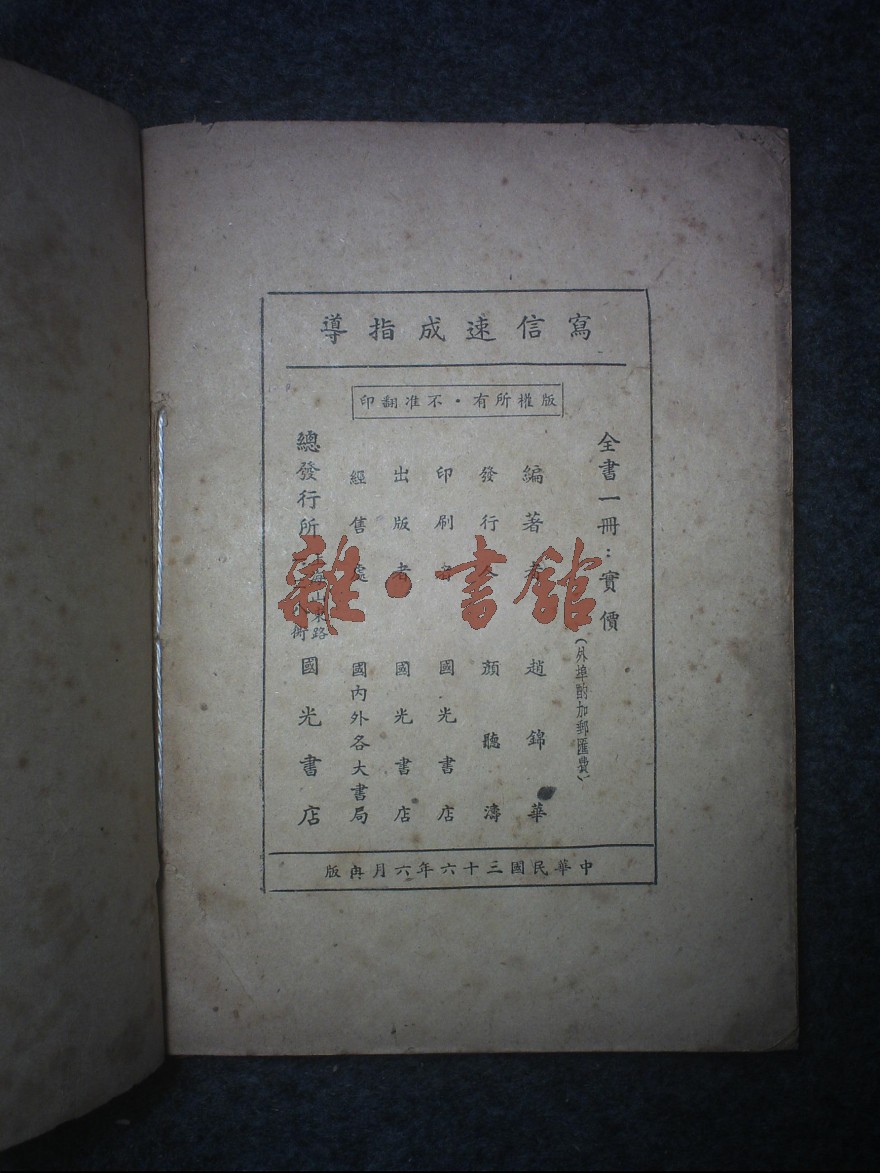 寫信速成指導
版權所有・不准翻印
全書一冊：實價
（外埠酌加郵匯費）
編著者 趙錦華
發行人 顏聽濤
印刷者 國光書店
出版者 國光書店
經售處 國內外各大書局
總發行所
東路
國光書店
中華民國三十六年六月再版
雜・書館